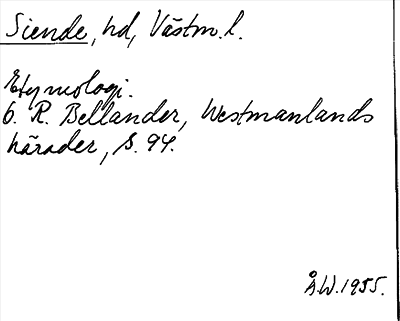 Siende, hd, Västm. l.
Etymologi.
6. R. Bellander, Westmanlands
härader, S. 94.
Å.W. 1955.